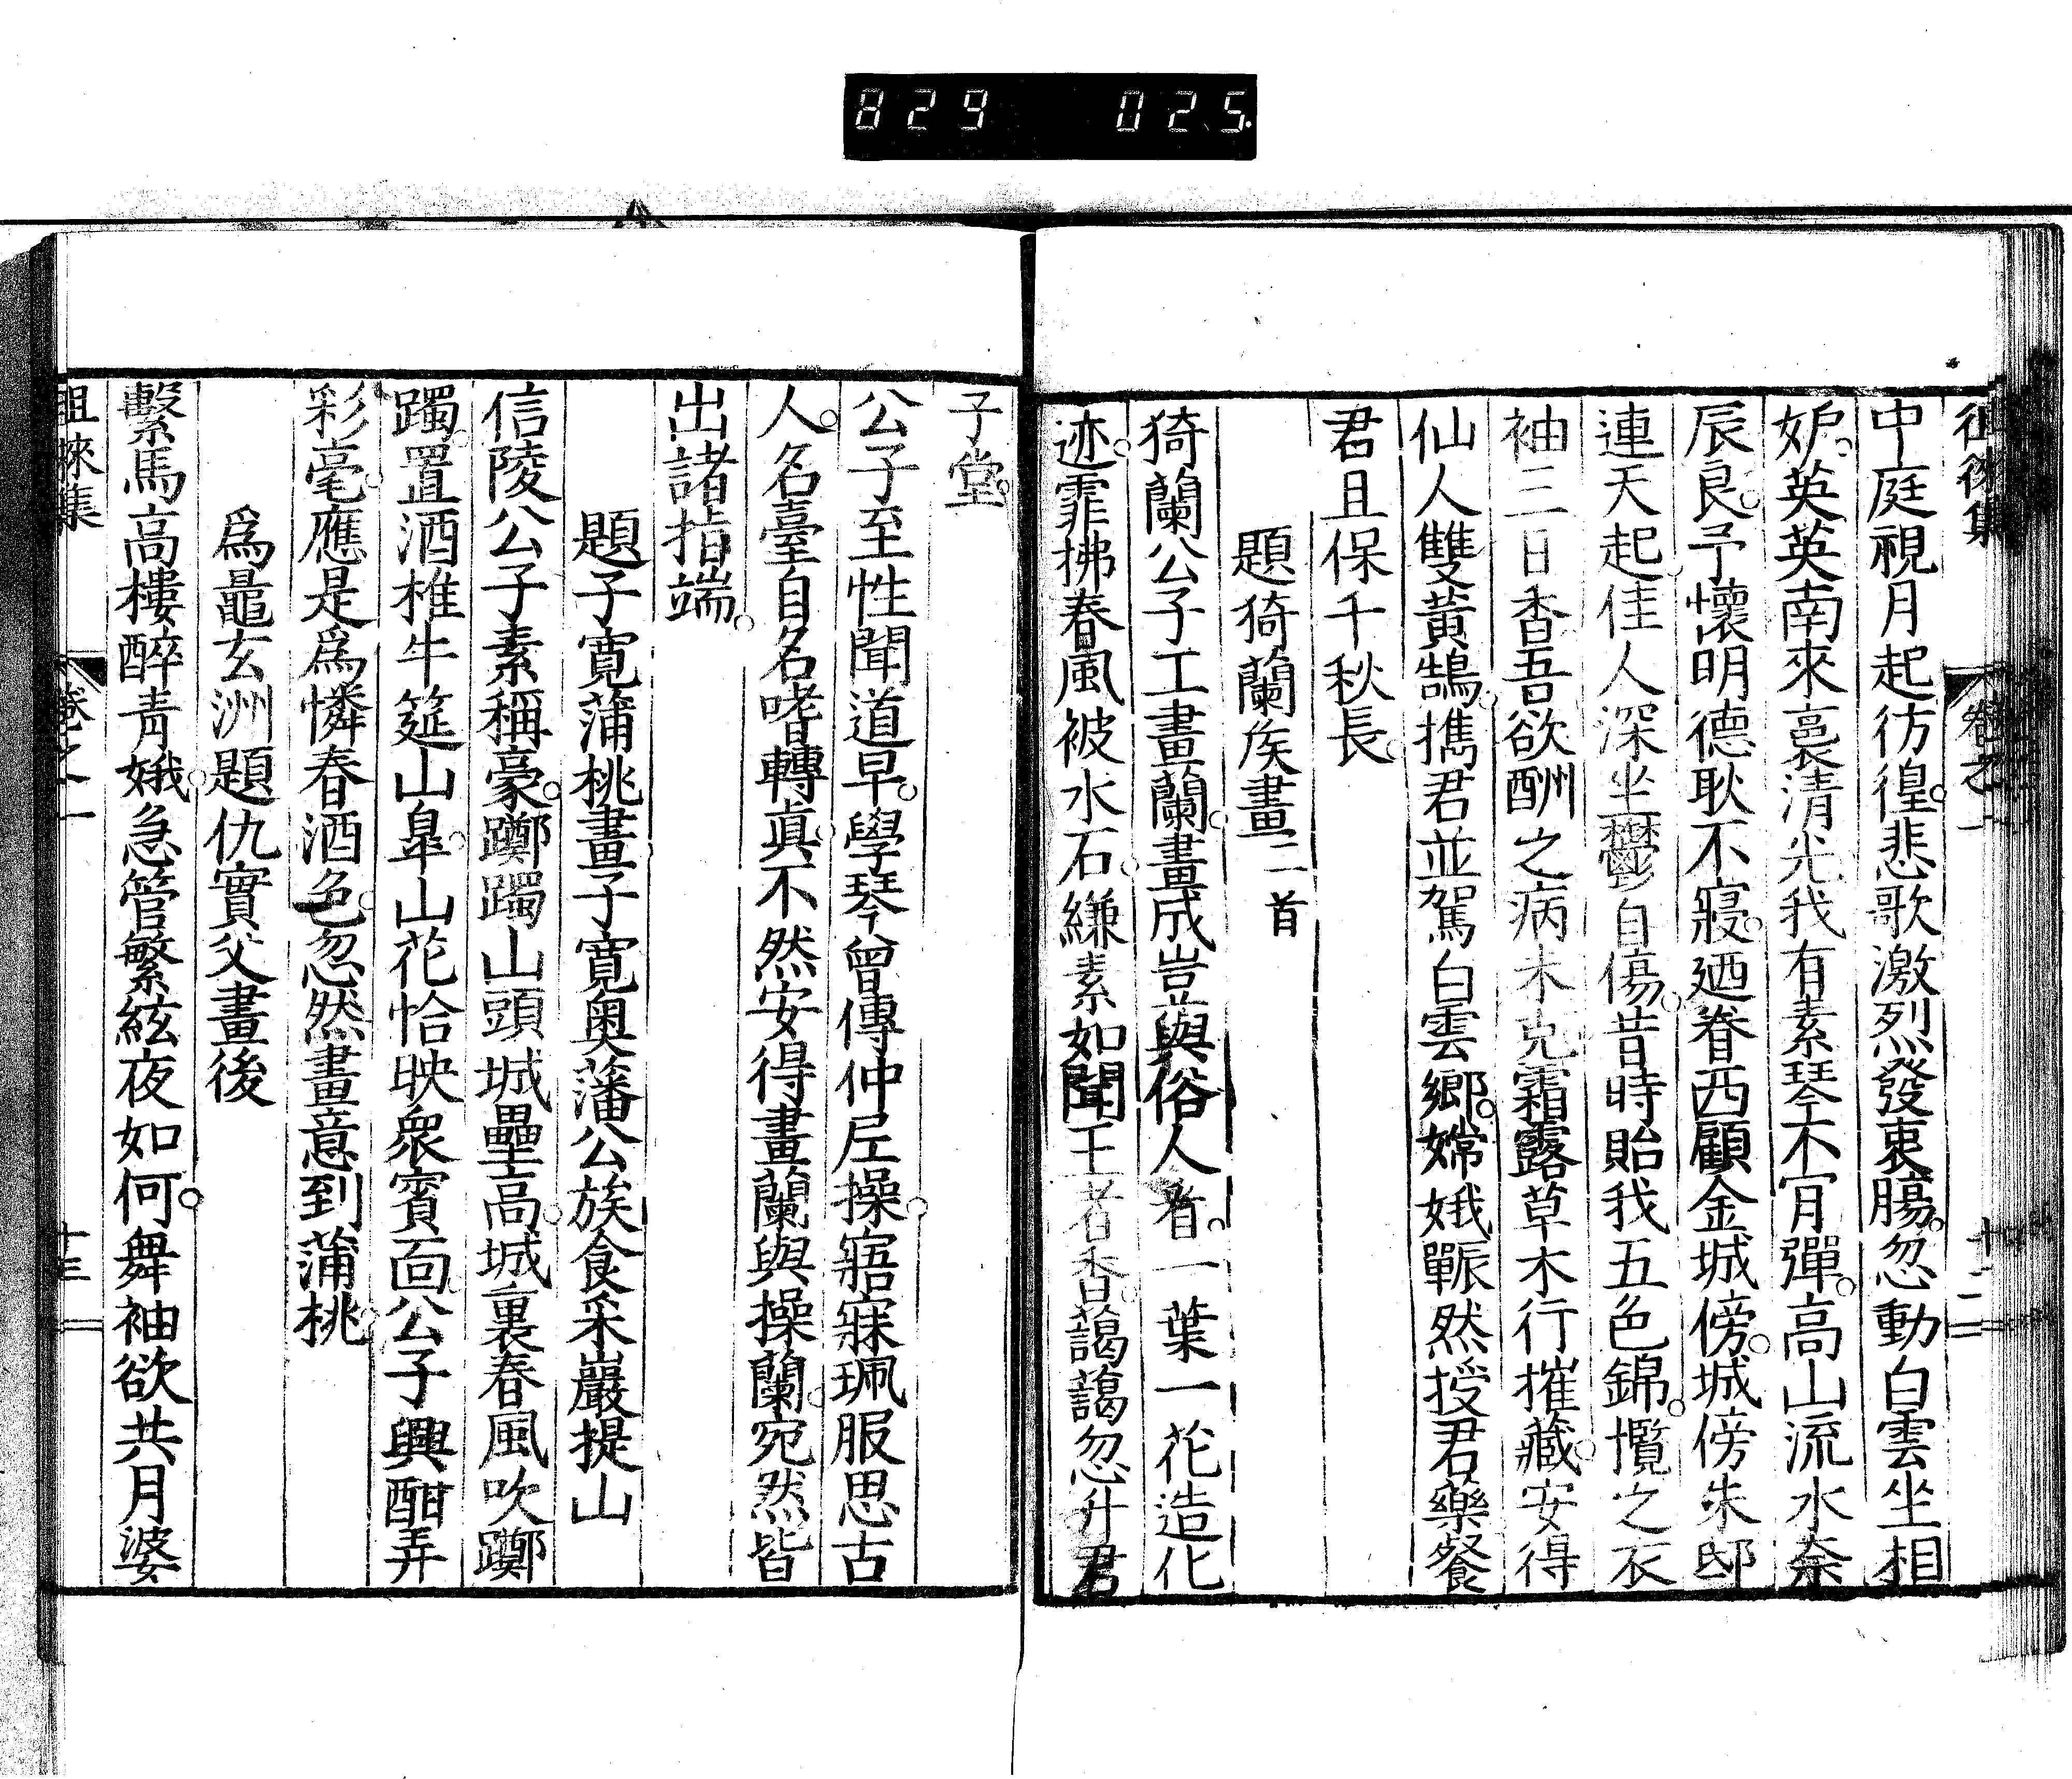 829 025.
徂徠集 卷之一 十二
中庭視月起彷徨悲歌激烈發衷腸忽動白雲坐相
妒英英南來裛清光我有素琴不肎彈高山流水奈
辰良予懷明德耿不寢廼眷西顧金城傍城傍朱邸
連天起佳人深坐鬱自傷昔時貽我五色錦攬之衣
袖三日香吾欲酬之病未克霜露草木行摧藏安得
仙人雙黃鵠攜君並駕白雲鄉嫦娥囅然授君藥餐
君且保千秋長
題猗蘭矦畫二首
猗蘭公子工畫蘭畫成豈與俗人看一葉一花造化
迹霏拂春風被水石縑素如聞王者香藹藹忽升君
子堂
公子至性聞道早學琴曾傳仲丘操寤寐珮服思古
人名臺自名嗜轉真不然安得畫蘭與操蘭宛然皆
出諸指端
題子寬蒲桃畫子寬奧藩公族食采巖提山
信陵公子素稱豪躑躅山頭城壘高城裏春風吹躑
躅置酒椎牛筵山皐山花恰映衆賓面公子興酣弄
彩毫應是爲憐春酒色忽然畫意到蒲桃
爲鼂玄洲題仇實父畫後
繫馬高樓醉青娥急管繁絃夜如何舞袖欲共月婆
徂徠集 卷之一 十三